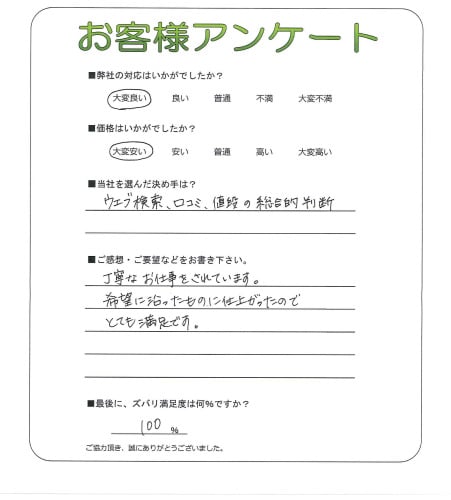 お客様アンケート
■弊社の対応はいかがでしたか？
大変良い 良い 普通 不満 大変不満
■価格はいかがでしたか？
大変安い 安い 普通 高い 大変高い
■当社を選んだ決め手は？
ウェブ検索、口コミ、値段の総合的判断
■ご感想・ご要望などをお書き下さい。
丁寧なお仕事をされています。
希望に沿ったものに仕上がったので
とても満足です。
■最後に、ズバリ満足度は何％ですか？
100 ％
ご協力頂き、誠にありがとうございました。